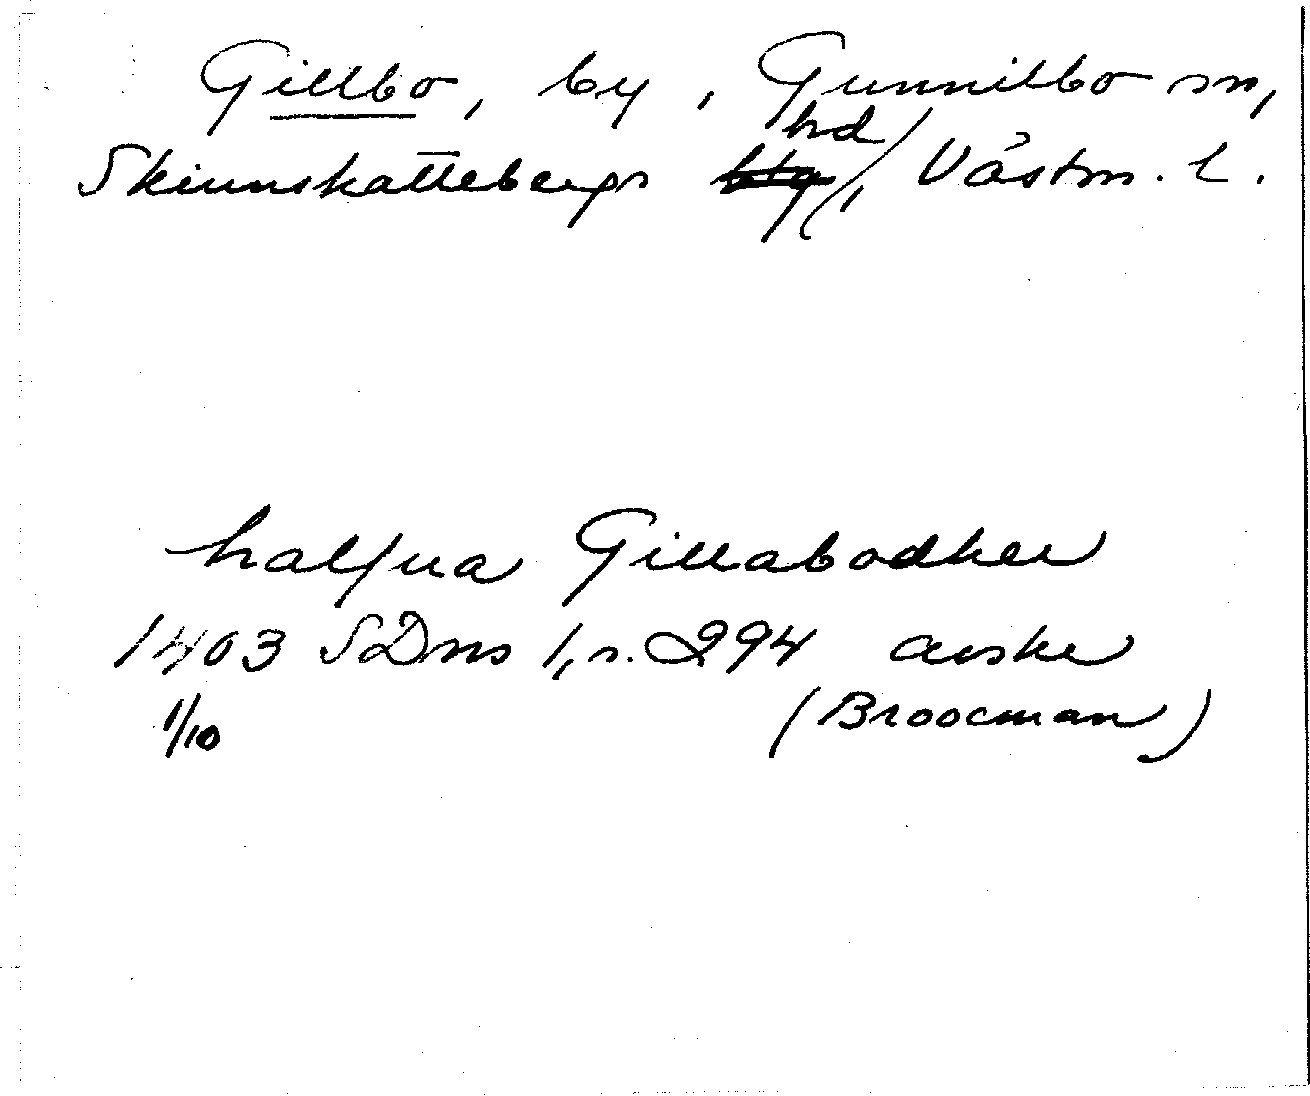 Gillbo, by, Gunnilbo sn,
Skinnskattebergs hd, Västm. l.
halfua Gillabodher
1403 SDns 1, s. 294 avskr
1/10 (Broocman)